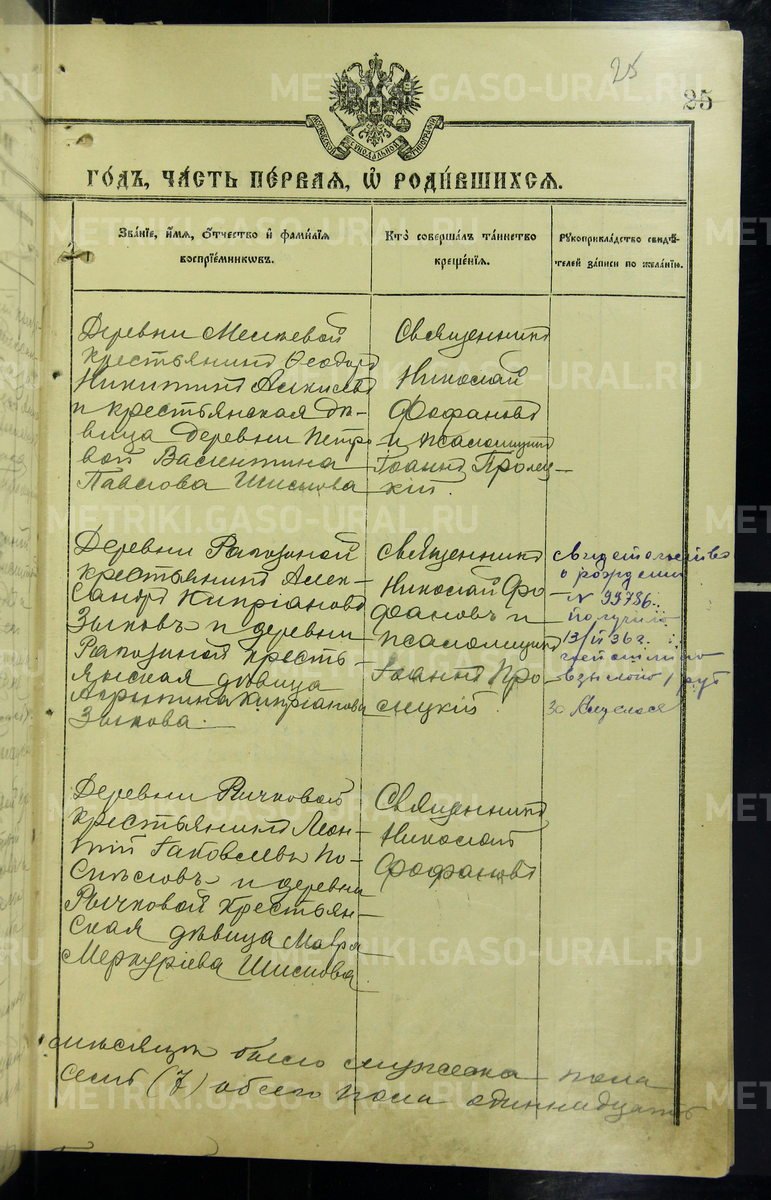 25
25
ГО́ДЪ, ЧА́СТЬ ПЕ́РВАЯ, Ѽ РОДИ́ВШИХСЯ.
Зва́нїе, и́мя, о́тчество и҆ фами́лїя
воспрїе́мниковъ.
Кто̀ соверша́лъ та́инство
креще́нїя.
Рукоприкла́дство свидѣ́-
телей за́писи по жела́нїю.
Деревни
крестьянинъ Ѳеодоръ
Никитинъ
и крестьянская дѣ-
вица деревни Петро-
вой Валентина
Павлова Шислова
Священникъ
Николай
Фофановъ
и псаломщикъ
Іоаннъ Пролец-
кій.
Деревни Рагозиной
крестьянинъ Алек-
сандръ Кипріановъ
Зыковъ и деревни
Рагозиной кресть-
янская дѣвица
Кипріанова
Зыкова.
Священникъ
Николай Фо-
фановъ и
псаломщикъ
Іоаннъ Про-
лецкій.
Свидетельство
о рождении
№ 99786
получило
13/II 36 г.
взыскано 1 руб
За
Деревни Рычковой
крестьянинъ Леон-
тій Іаковлевъ По-
спѣловъ и деревни
Рычковой крестьян-
ская дѣвица Мавра
Меркуріева Шислова.
Священникъ
Николай
Фофановъ
мѣсяцѣ было мужеска пола
семь (7) обоего пола одиннадцать
METRIKI.GASO-URAL.RU